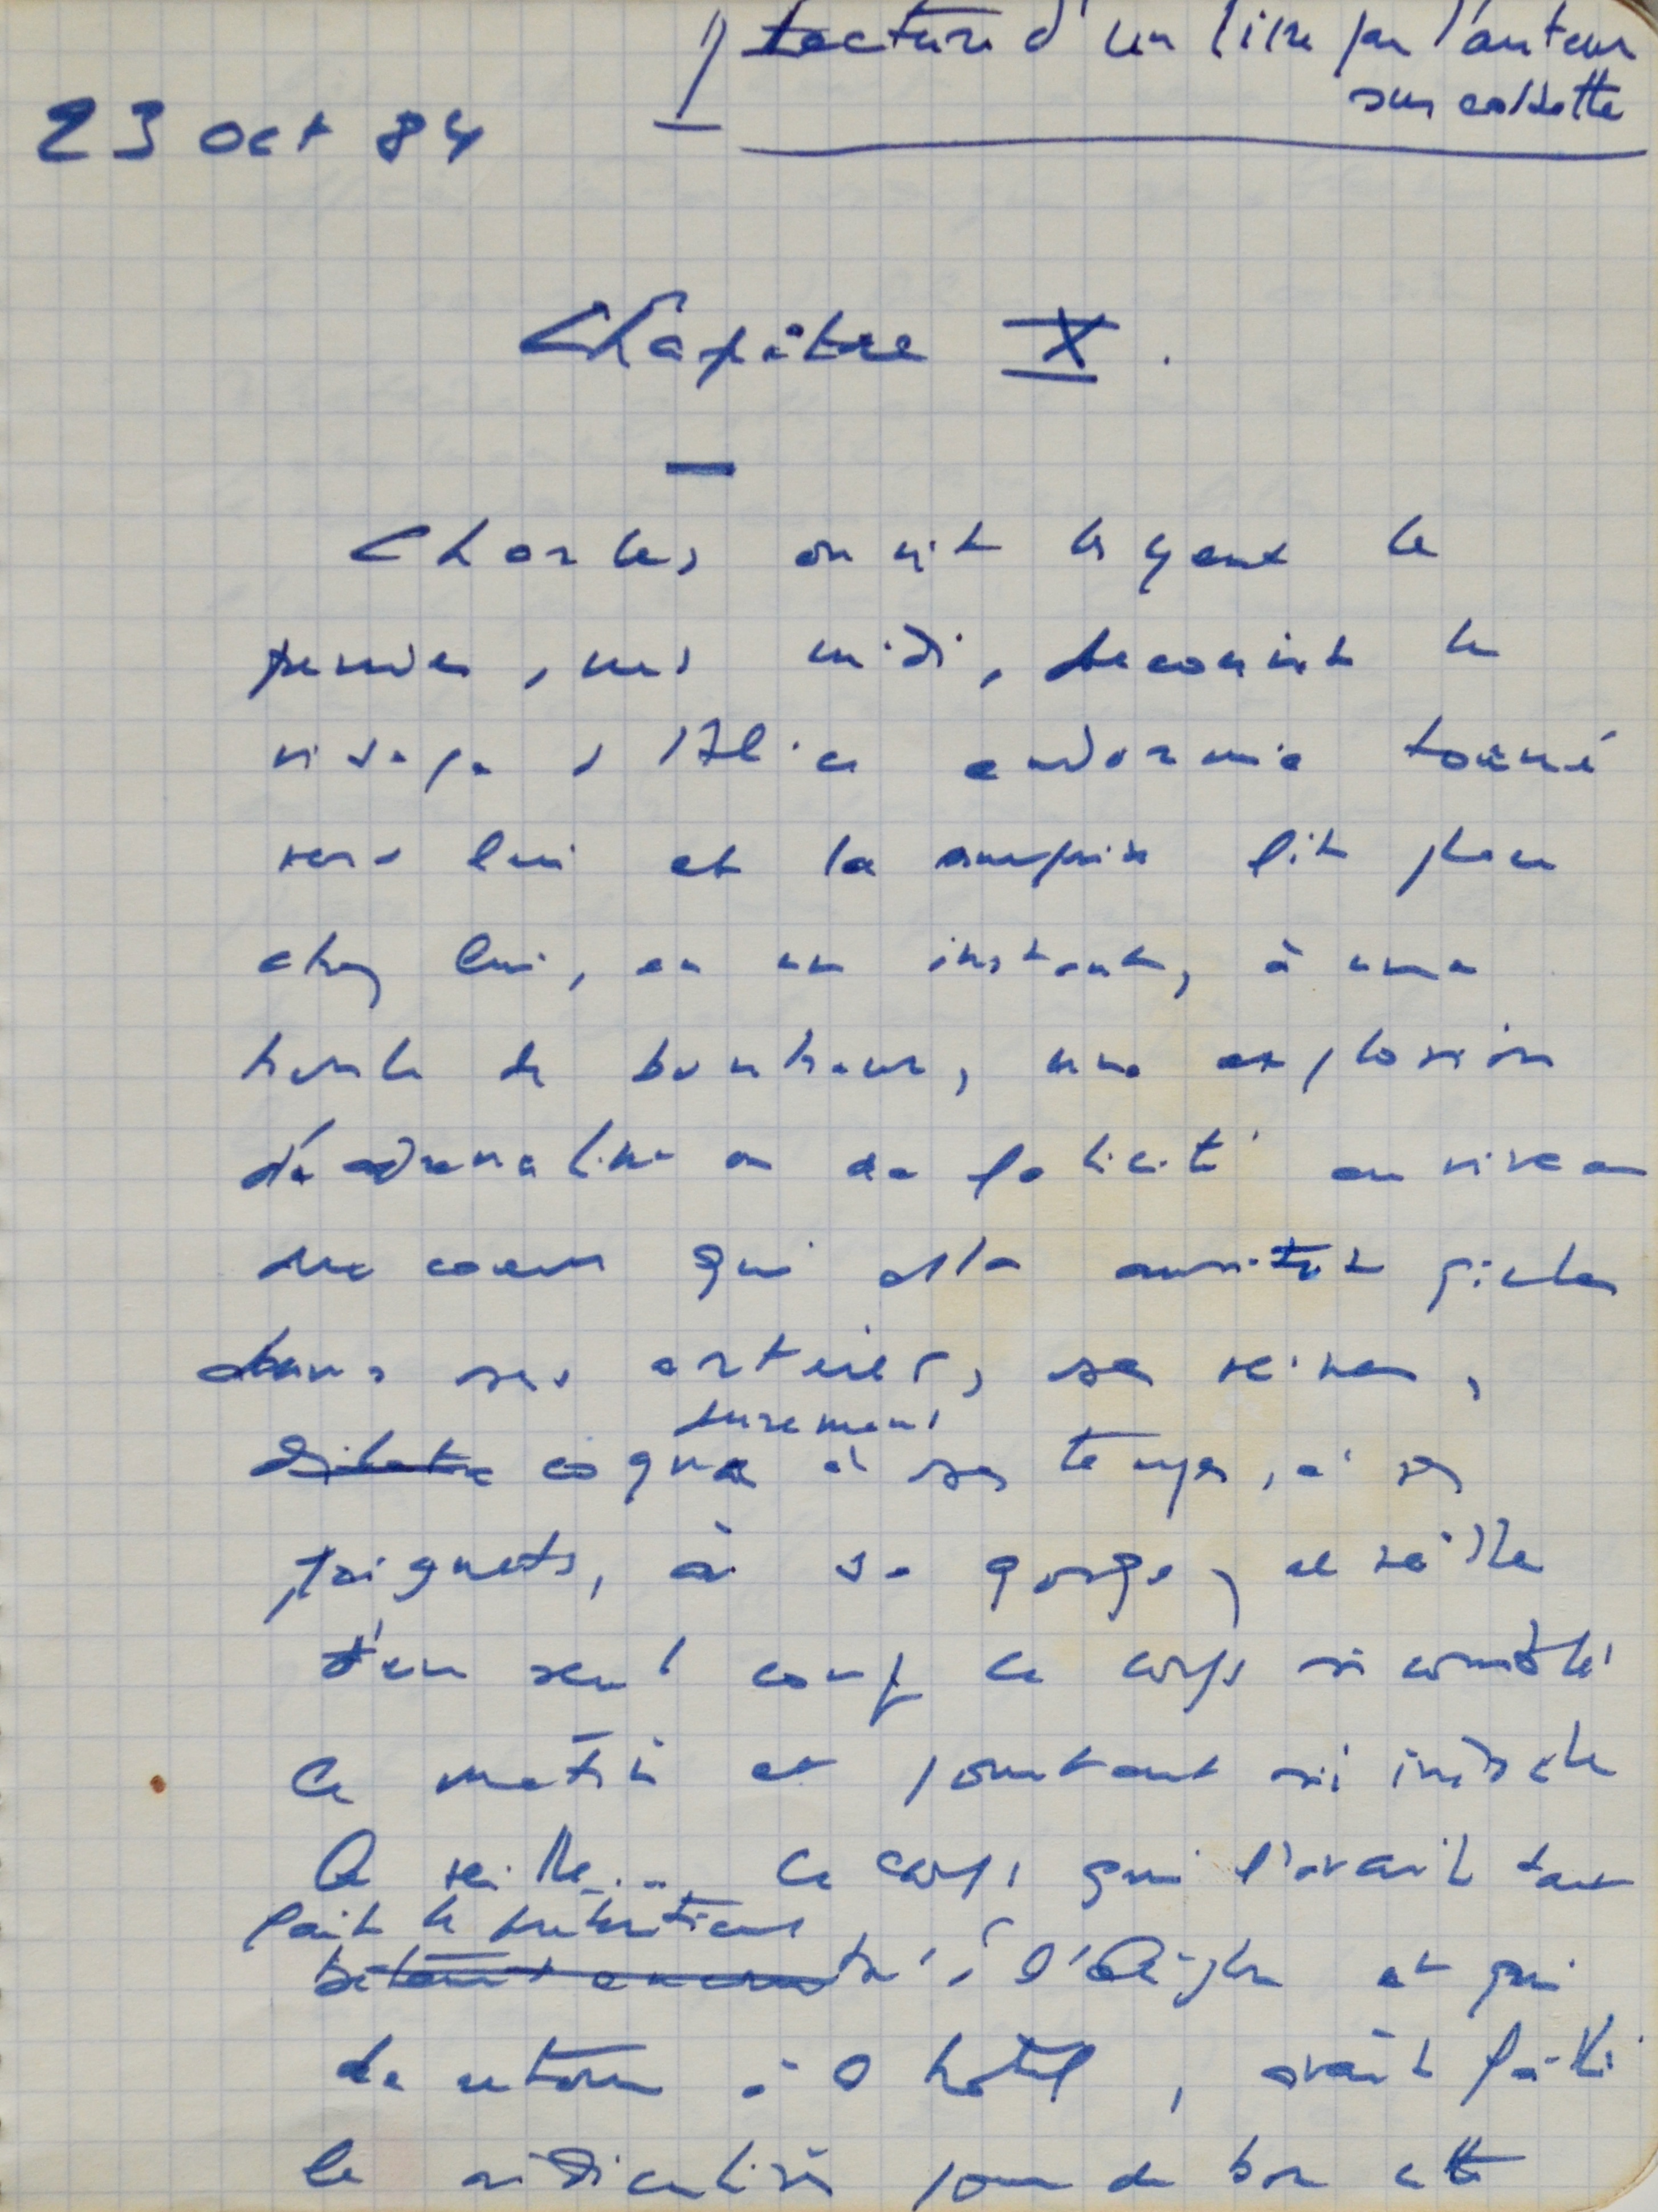 1) Lecture d'un livre par l'auteur
sur cassette
23 oct 84
Chapitre X.
Charles ouvrit les yeux le
premier, vers midi, découvrit le
visage d'Alice endormie tourné
vers lui et la surprise fit place
chez lui, en un instant, à une
boule de bonheur, une explosion
d'adrénaline ou de félicité au niveau
du coeur qui alla aussitôt gicler
dans ses artères, ses veines,
durement
cogna à ses tempes, à ses
poignets, à sa gorge, réveilla
d'un seul coup ce corps si comblé
ce matin et pourtant si indocile
la veille... Ce corps qui l'avait tant
fait
à l'Aigle et qui
de retour à l'hôtel, avait failli
le ridiculiser pour de bon cette